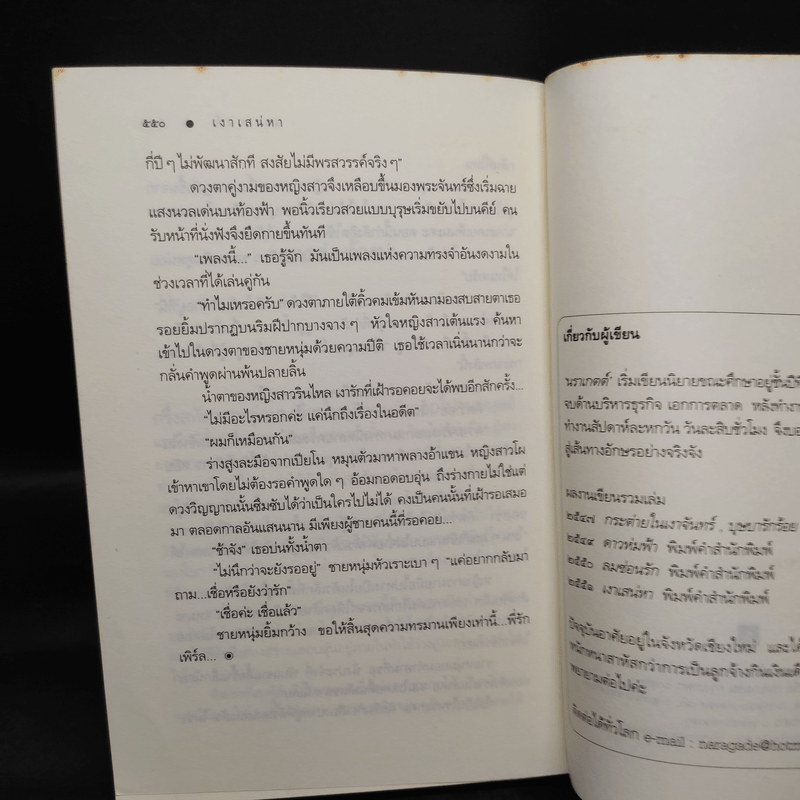 ๕๕๐ ● เงาเสน่หา
กี่ปี ๆ ไม่พัฒนาสักที สงสัยไม่มีพรสวรรค์จริง ๆ”
ดวงตาคู่งามของหญิงสาวจึงเหลือบขึ้นมองพระจันทร์ซึ่งเริ่มฉาย
แสงนวลเด่นบนท้องฟ้า พอนิ้วเรียวสวยแบบบุรุษเริ่มขยับไปบนคีย์ คน
รับหน้าที่นั่งฟังจึงยืดกายขึ้นทันที
“เพลงนี้...” เธอรู้จัก มันเป็นเพลงแห่งความทรงจำอันงดงามใน
ช่วงเวลาที่ได้เล่นคู่กัน
“ทำไมเหรอครับ” ดวงตาภายใต้คิ้วคมเข้มหันมามองสบสายตาเธอ
รอยยิ้มปรากฏบนริมฝีปากบางจาง ๆ หัวใจหญิงสาวเต้นแรง ค้นหา
เข้าไปในดวงตาของชายหนุ่มด้วยความปีติ เธอใช้เวลาเนิ่นนานกว่าจะ
กลั่นคำพูดผ่านพ้นปลายลิ้น
น้ำตาของหญิงสาวรินไหล เงารักที่เฝ้ารอคอยจะได้พบอีกสักครั้ง...
“ไม่มีอะไรหรอกค่ะ แค่นึกถึงเรื่องในอดีต”
“ผมก็เหมือนกัน”
ร่างสูงละมือจากเปียโน หมุนตัวมาหาพลางอ้าแขน หญิงสาวโผ
เข้าหาเขาโดยไม่ต้องรอคำพูดใด ๆ อ้อมกอดอบอุ่น ถึงร่างกายไม่ใช่แต่
ดวงวิญญาณนั้นซึมซับได้ว่าเป็นใครไปไม่ได้ คงเป็นคนนั้นที่เฝ้ารอเสมอ
มา ตลอดกาลอันแสนนาน มีเพียงผู้ชายคนนี้ที่รอคอย...
“ช้าจัง” เธอบ่นทั้งน้ำตา
“ไม่นึกว่าจะยังรออยู่” ชายหนุ่มหัวเราะเบา ๆ “แค่อยากกลับมา
ถาม...เชื่อหรือยังว่ารัก”
“เชื่อค่ะ เชื่อแล้ว”
ชายหนุ่มยิ้มกว้าง ขอให้สิ้นสุดความทรมานเพียงเท่านี้...พี่รัก
เพิร์ล... ◉
เกี่ยวกับผู้เขียน
นราเกตต์ เริ่มเขียนนิยายขณะศึกษาอยู่ชั้นปีที่
จบด้านบริหารธุรกิจ เอกการตลาด หลังทำงา
ทำงานสัปดาห์ละหกวัน วันละสิบชั่วโมง จึงบอ
สู่เส้นทางอักษรอย่างจริงจัง
ผลงานเขียนรวมเล่ม
๒๕๔๗ กระต่ายในเงาจันทร์ , บุษบารักร้อย
๒๕๔๙ ดาวห่มฟ้า พิมพ์คำสำนักพิมพ์
๒๕๕๐ ลมซ่อนรัก พิมพ์คำสำนักพิมพ์
๒๕๕๑ เงาเสน่หา พิมพ์คำสำนักพิมพ์
ปัจจุบันอาศัยอยู่ในจังหวัดเชียงใหม่ และได้
หนักหนาสาหัสกว่าการเป็นลูกจ้างกินเงินเดื
พยายามต่อไปค่ะ
ติดต่อได้ทั่วโลก e-mail : naragade@hotm